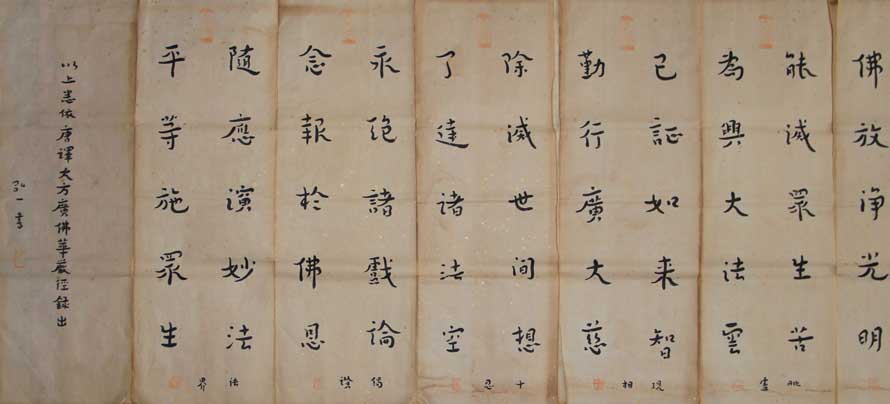 佛放淨光明
能滅眾生苦
為興大法雲
毗盧
已証如来智
勤行廣大慈
現相
除滅世間想
了達诸法空
十忍
永絕諸戲論
念報於佛恩
偈讚
隨應演妙法
平等施眾生
法界
以上悉依唐譯大方廣佛華嚴經錄出
弘一書